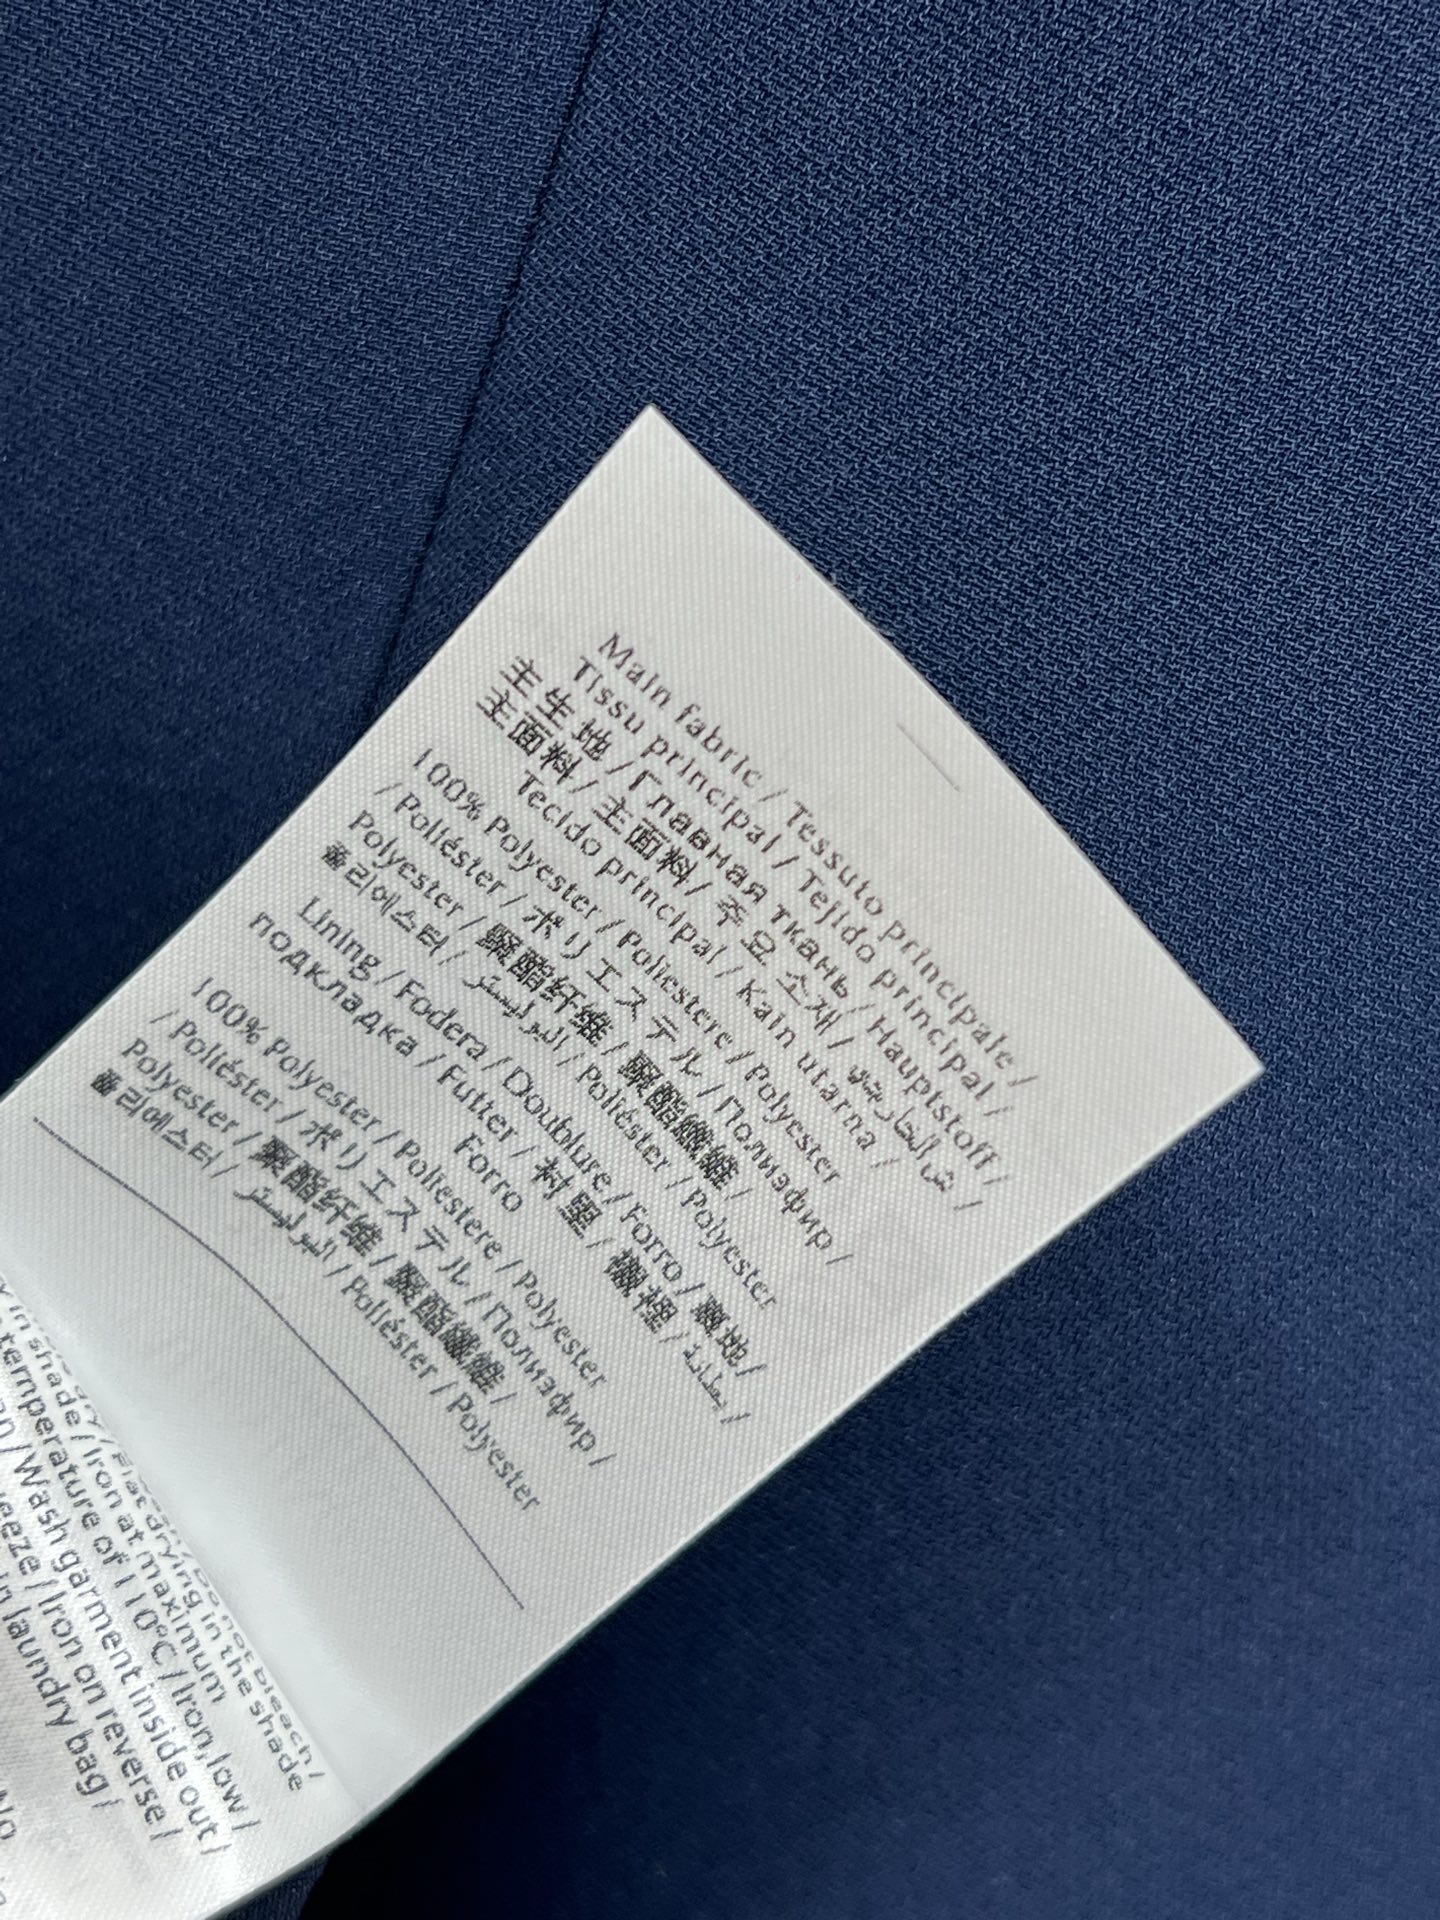 Main fabric / Tessuto principale /
Tissu principal / Tejido principal /
主生地 / Главная ткань / Hauptstoff /
主面料 / 主面料 / 주요 소재 /
Tecido principal / Kain utama /
100% Polyester / Poliestere / Polyester
/ Poliéster / ポリエステル / Полиэфир /
Polyester / 聚酯纤维 / 聚酯纖維 /
폴리에스터 / البوليستر / Poliéster / Polyester
Lining / Fodera / Doublure / Forro / 裏地 /
подкладка / Futter / 衬里 / 襯裡 / بطانة /
Forro
100% Polyester / Poliestere / Polyester
/ Poliéster / ポリエステル / Полиэфир /
Polyester / 聚酯纤维 / 聚酯纖維 /
폴리에스터 / البوليستر / Poliéster / Polyester
bleach /
in the shade
in shade / Iron at maximum
temperature of 110°C / Iron, low /
/ Wash garment inside out /
/ Iron on reverse /
in laundry bag /
No